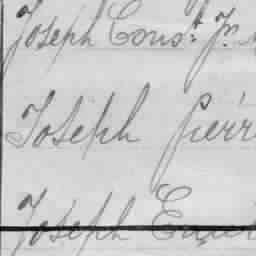 Joseph Const. Jn
Joseph Pierr
Joseph